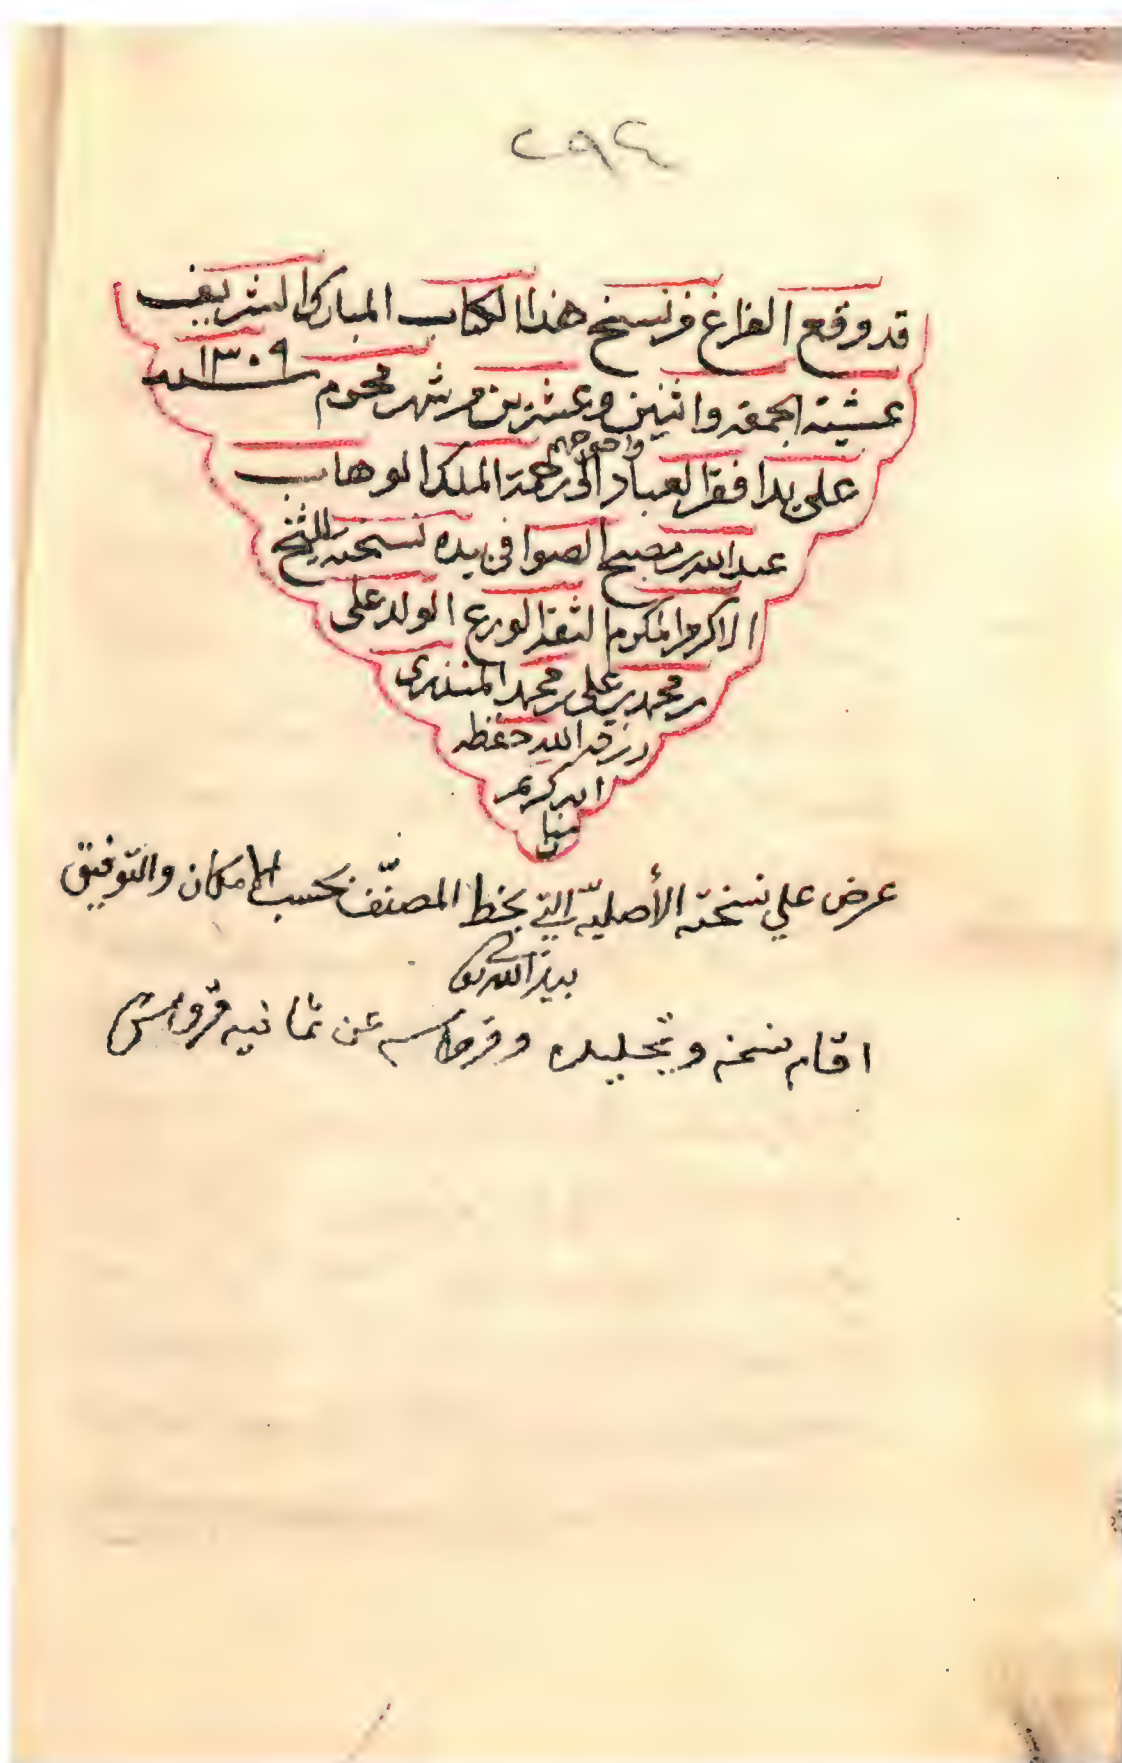 ٢٩٤
قد وقع الفراغ من نسخ هذا الكتاب المبارك الشريف
عشية الجمعة واثنين وعشرين من شهر محرم سنة ١٣٠٩
على يد افقر العباد واحوجهم الى رحمة الملك الوهاب
عبد الله بن مصبح الصوافي بيده نسخته للشيخ
الاكرم المكرم الثقة الورع الولد علي
بن محمد بن علي بن محمد المنذري
رزقه الله حفظه
انه كريم
منان
عرض علي نسخته الأصليّة التي بخط المصنّف بحسب الإمكان والتوفيق
بيد الله
اقام نسخه وتجليده وقرطاسه عن ثمانية قروش